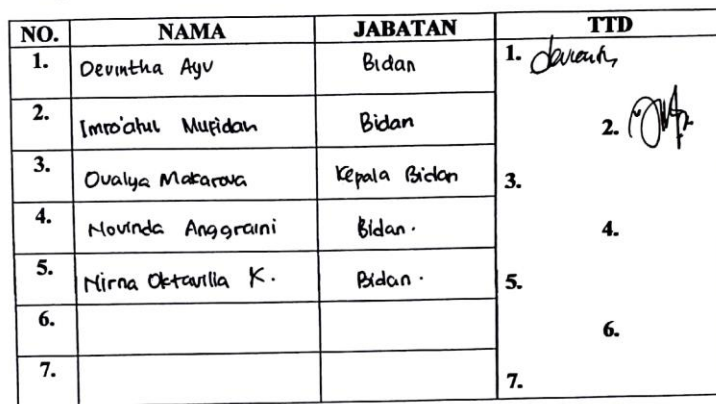 NO. NAMA JABATAN TTD
1. Devintha Ayu Bidan 1.
2. Imro'atul Mufidah Bidan 2.
3. Ovalya Makarova Kepala Bidan 3.
4. Novinda Anggraini Bidan. 4.
5. Nirna Oktavilia K. Bidan. 5.
6. 6.
7. 7.